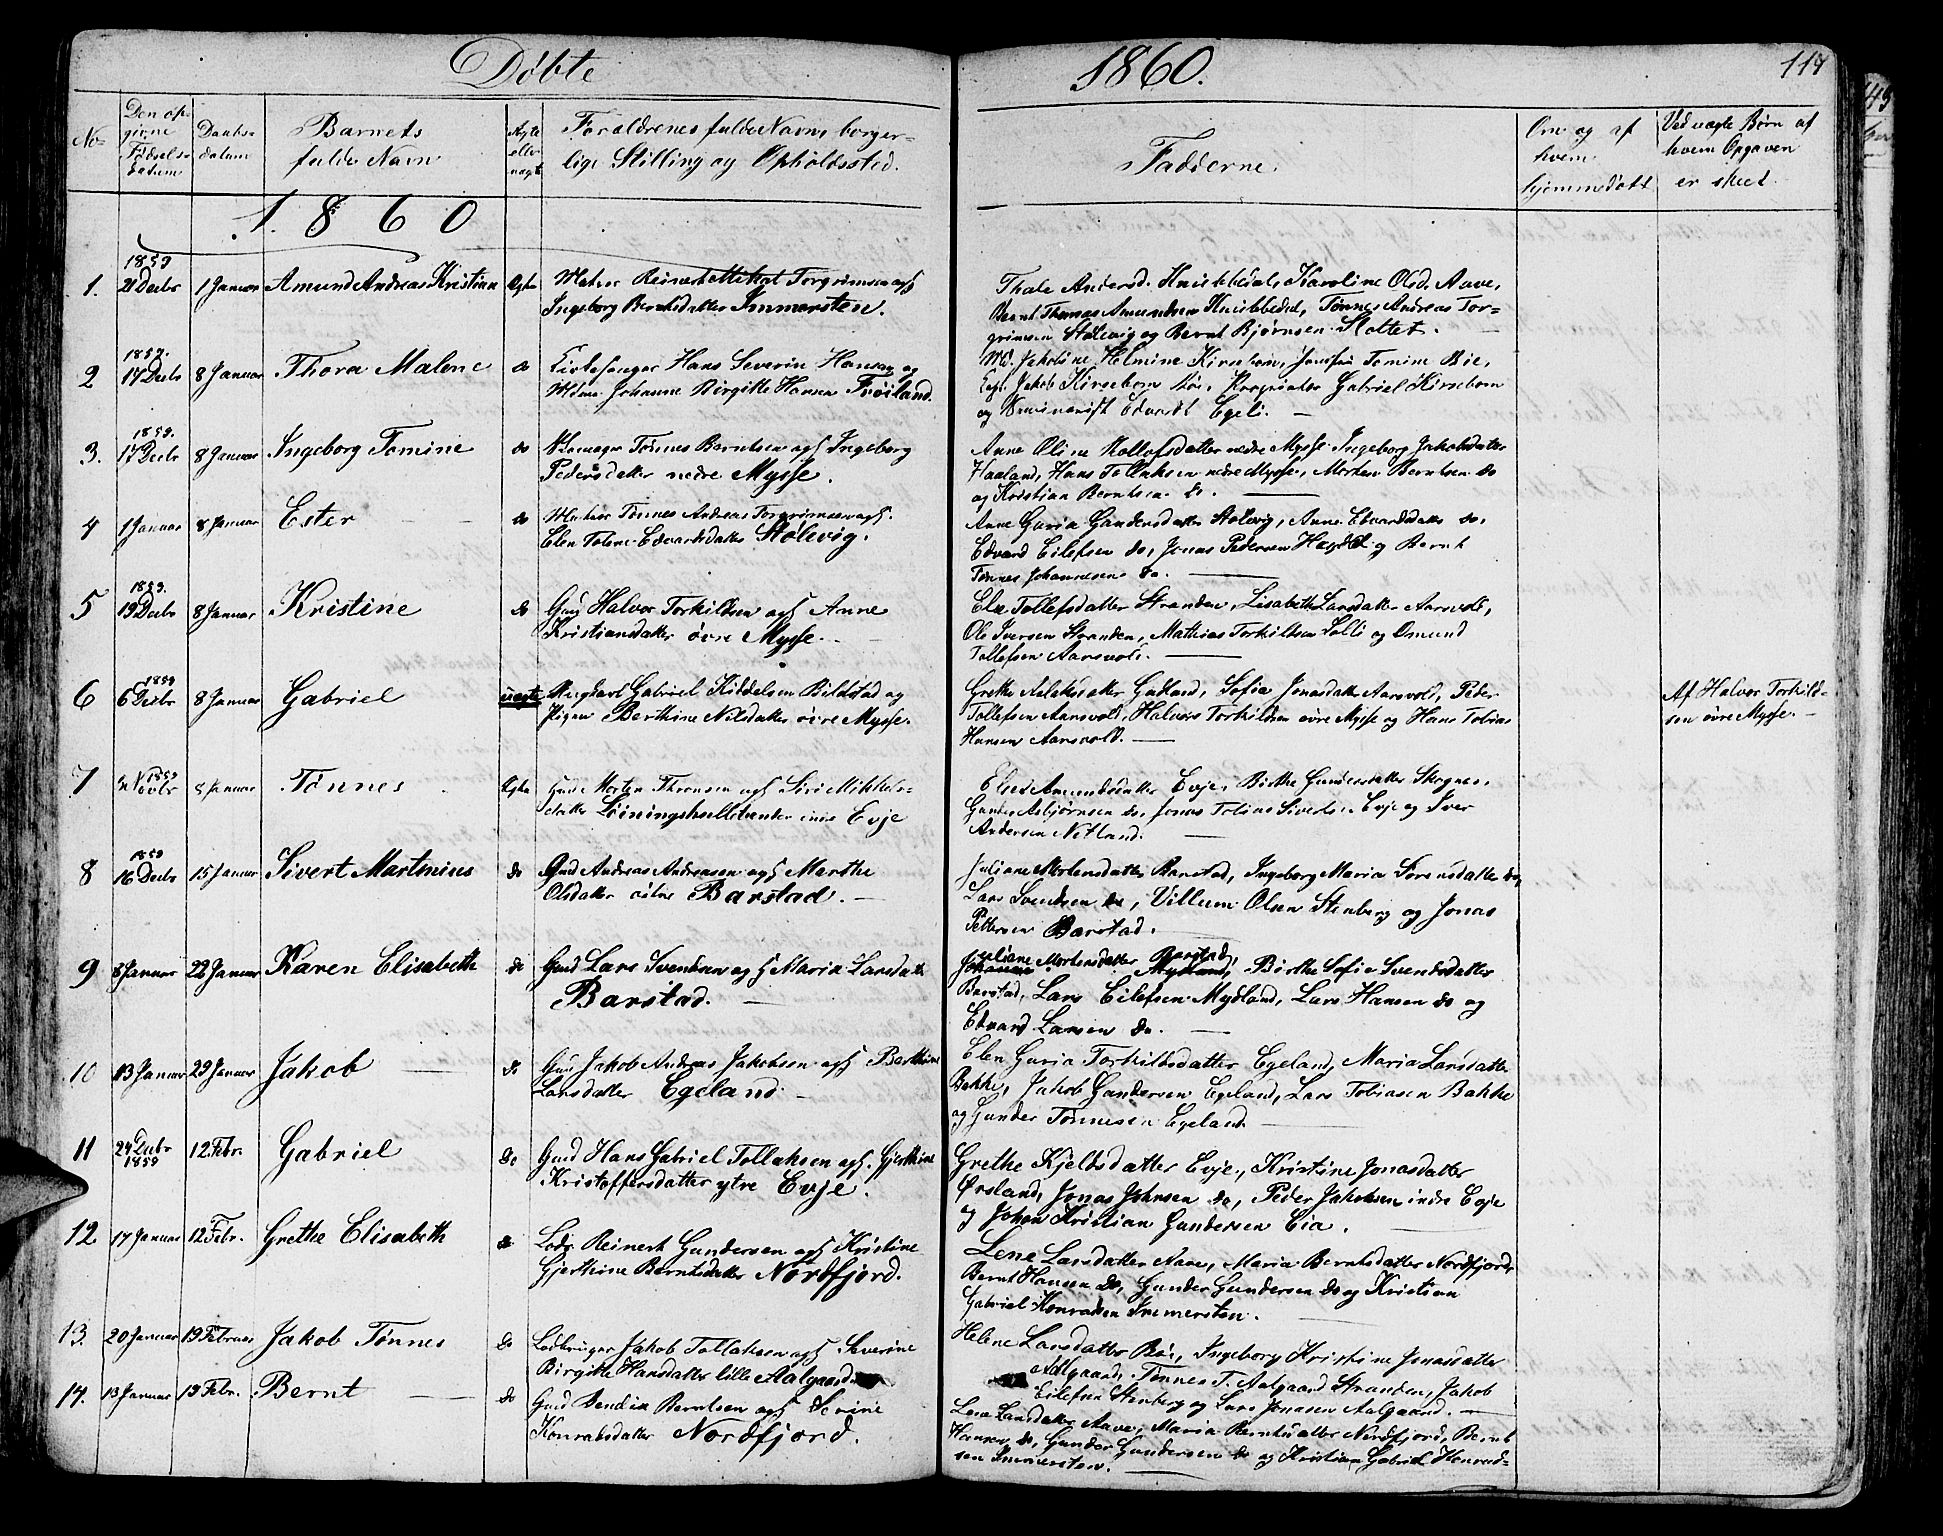 Døbte 1860. 117
No
Den op-
givne
Fødsels-
datum
Daabs-
datum
Barnets
fulde Navn
Ægte
eller
uægte
Forældrenes fulde Navn, borger-
lige Stilling og Opholdssted.
Fadderne.
Om og af
hvem
hjemmedøbt
Ved uægte Børn af
hvem Opgaven
er skeet.
1860
1. 1859 21 Decbr 1 Januar Amund Andreas Kristian Ægte
Reinert Torgrimsen og H
Ingeborg Berntsdatter Immersten.
Thale Andersd. Karoline Olsd. Aave,
Bernt Thomas Amundsen Tønnes Andreas Tor-
grimsen Stølevig og Bernt Bjørnsen Slottet.
2 1859. 17 Decbr 8 Januar Thora Malene do
Kirkesanger Hans Severin Hansen og
Mdme Johanne Birgitte Hansen Frøiland.
Md. Jakobine Helmine Kirsebom, Jomfru Tomine Bie,
Jakob Kirsebom Proprietær Gabriel Kirsebom
og Seminarist Edvardt Egeli.
3. 1859. 17 Decbr 8 Januar Ingeborg Tomine do
Skomager Tønnes Berntsen og H Ingeborg
Pedersdatter nedre Mysse.
Anne Oline Rollefsdatter nedre Mysse Ingeborg Jakobsdatter
Haaland, Hans Tollaksen nedre Mysse, Morten Berntsen do
og Kristian Berntsen do.
4 1 Januar 8 Januar Ester do
Tønnes Andreas Torgrimsen og H.
Elen Tolene Edvardsdatter Stølevig.
Anne Guria Gundersdatter Stølevig, Anne Edvardsdatter do,
Edvard Eilefsen do, Jonas Pedersen og Bernt
Tønnes Johannesen do.
5 1859. 19 Decbr 8 Januar Kristine do
Gmd Halvor Torkildsen og H Anne
Kristiansdatter øvre Mysse.
Tollefsdatter Stranden, Lisabeth Larsdatter Aarsvold,
Ole Iversen Stranden, Mathias Torkildsen Solli og Omund
Tollefsen Aarsvold.
6 1859 6 Decbr 8 Januar Gabriel uægte
Ungkarl Gabriel Kiddelsen Bilstad og
Pigen Berthine Nilsdatter øvre Mysse.
Grethe Gudland, Sofia Jonasdatter Aarsvold, Peder
Tollefsen Aarsvold, Halvor Torkildsen øvre Mysse og Hans Tobias
Hansen Aarsvold.
Af Halvor Torkild-
sen øvre Mysse.
7 1859 Novbr 8 Januar Tønnes Ægte
Gmd Morten Thronsen og H Siri Mikkels-
datter indre Evje
Else Amundsdatter Evje, Birthe Gundersdatter Skognes,
Gunder Asbjørnsen do, Jonas Tobias Sivertsen Evje og Iver
Andersen Netland.
8 1859 16 Decbr 15 Januar Sivert Martinius do
Gmd Andreas Andreassen og H Marthe
Olsdatter Barstad.
Juliane Mortensdatter Barstad, Ingeborg Maria Sørensdatter do,
Lars Svendsen do, Villum Olsen Stenberg og Jonas
Pettersen Barstad.
9 8 Januar 22 Januar Karen Elisabeth do
Gmd Lars Svendsen og H Maria Larsdatter
Barstad.
Juliane Mortensdatter Barstad, Birthe Sofie Svendsdatter
Barstad, Lars Eilefsen Mydland, Lars Hansen do og
Edvard Larsen do.
10 13 Januar 29 Januar Jakob do
Gmd Jakob Andreas Jakobsen og H Berthine
Larsdatter Egeland.
Elen Guria Torkildsdatter Egeland, Maria Larsdatter
Bakke, Jakob Gundersen Egeland, Lars Tobiasen Bakke
og Gunder Tønnesen Egeland
11 24 Decbr 1859 12 Febr. Gabriel do
Gmd Hans Gabriel Tollaksen og H. Gjerthine
Kristoffersdatter ytre Evje.
Grethe Kjeldsdatter Evje, Kristine Jonasdatter
Ørsland, Jonas Johnsen do, Peder Jakobsen indre Evje
og Johan Kristian Gundersen Eia.
12 17 Januar 12 Febr. Grethe Elisabeth do
Lods Reinert Gundersen og H Kristine
Gjerthine Berntsdatter Nordfjord.
Lene Larsdatter Aave, Maria Berntsdatter Nordfjord,
Bernt Hansen do, Gunder Gundersen do og Kristian
Gabriel Konradsen Immersten.
13. 20 Januar 19 Februar Jakob Tønnes do
Ledbruger Jakob Tollaksen og H Severine
Birgitte Hansdatter lille Aalgaard
Helene Larsdatter Bøe, Ingeborg Kristine Jonasdatter
Aalgaard, Tønnes T. Aalgaard Stranden, Jakob
Eilefsen Stenberg og Lars Jonasen Aalgaard.
14. 13 Januar 19 Febr. Bernt do
Gmd Bendix Berntsen og H Serine
Konradsdatter Nordfjord.
Lene Larsdatter Aave, Maria Berntsdatter Nordfjord, Bernt
Hansen do, Gunder Gundersen do og Kristian Gabriel Konrad-
sen Immersten.